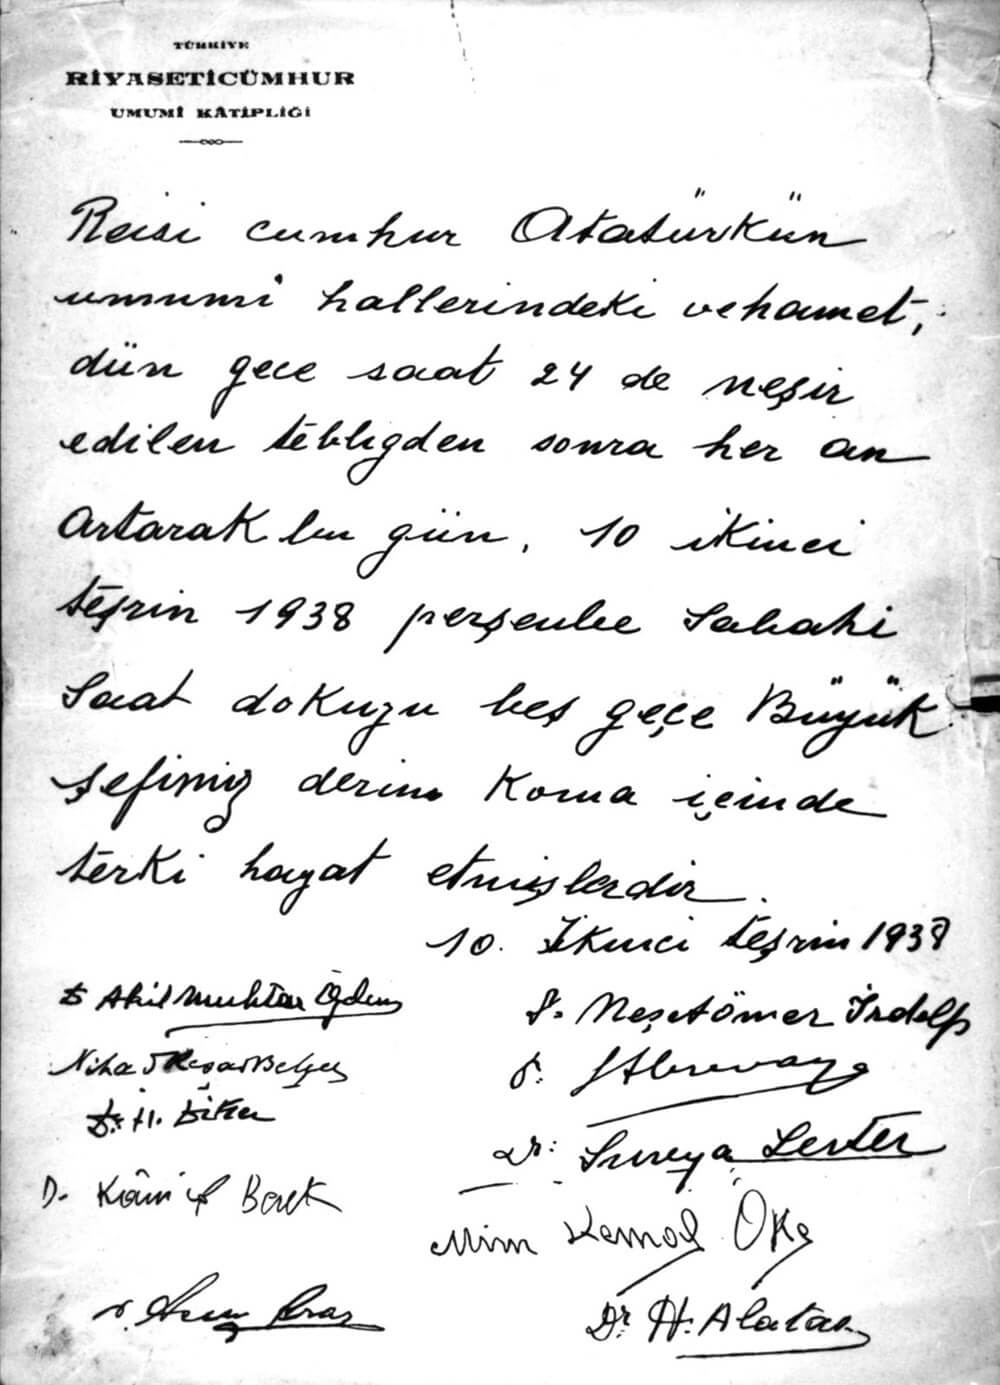 TÜRKİYE
RİYASETİCÜMHUR
UMUMÎ KÂTİPLİĞİ
Reisi cumhur Atatürkün
umumî hallerindeki vehamet,
dün gece saat 24 de neşir
edilen tebligden sonra her an
artarak bu gün, 10 ikinci
teşrin 1938 perşenbe sabahi
saat dokuzu beş geçe Büyük
şefimiz derin koma içinde
terki hayat etmişlerdir.
10. İkinci teşrin 1938
Dr Akil Muhtar Özden
Dr. Neşetömer İrdelp
Nihad Reşad Belger
Dr. Abrevaya
Dr. H. Diker
Dr: Süreya Serter
Dr. Kâmil Berk
Mim Kemal Öke
Dr. Asım Arar
Dr. H. Alataş